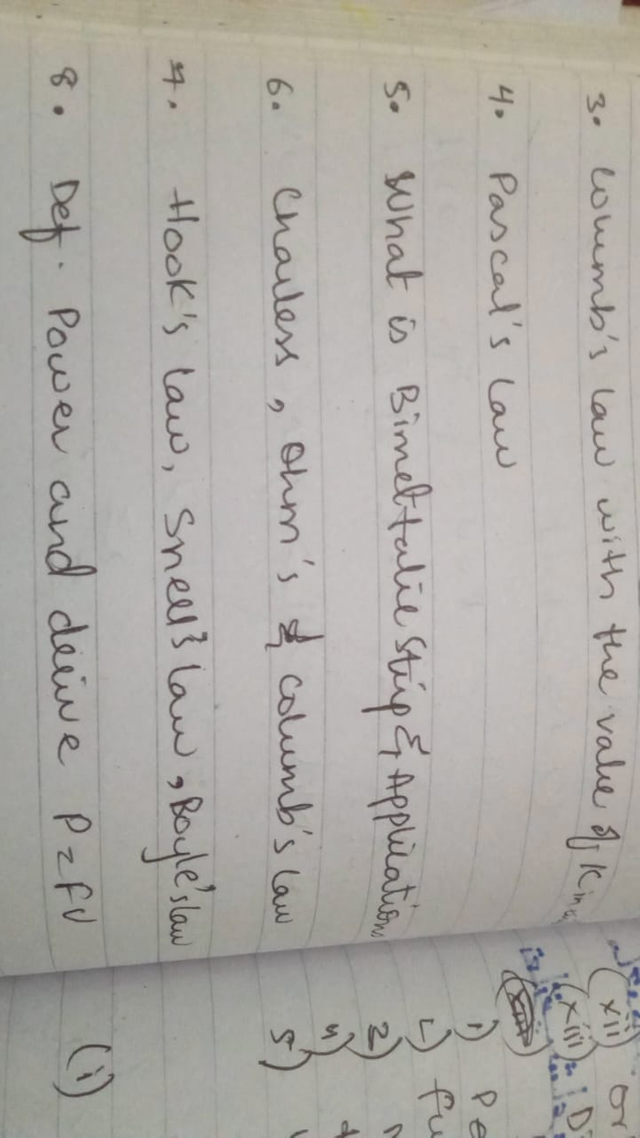 3. Coulumb's law with the value of K in
4. Pascal's law
5. What is Bimettalic Strip & Applications
6. Charless, Ohm's & columb's law
7. Hook's law, Snell's law, Boyle's law
8. Def. Power and derive P=FV
(xii) or
(xiii) D
1) Pe
2)
4)
5)
(i)